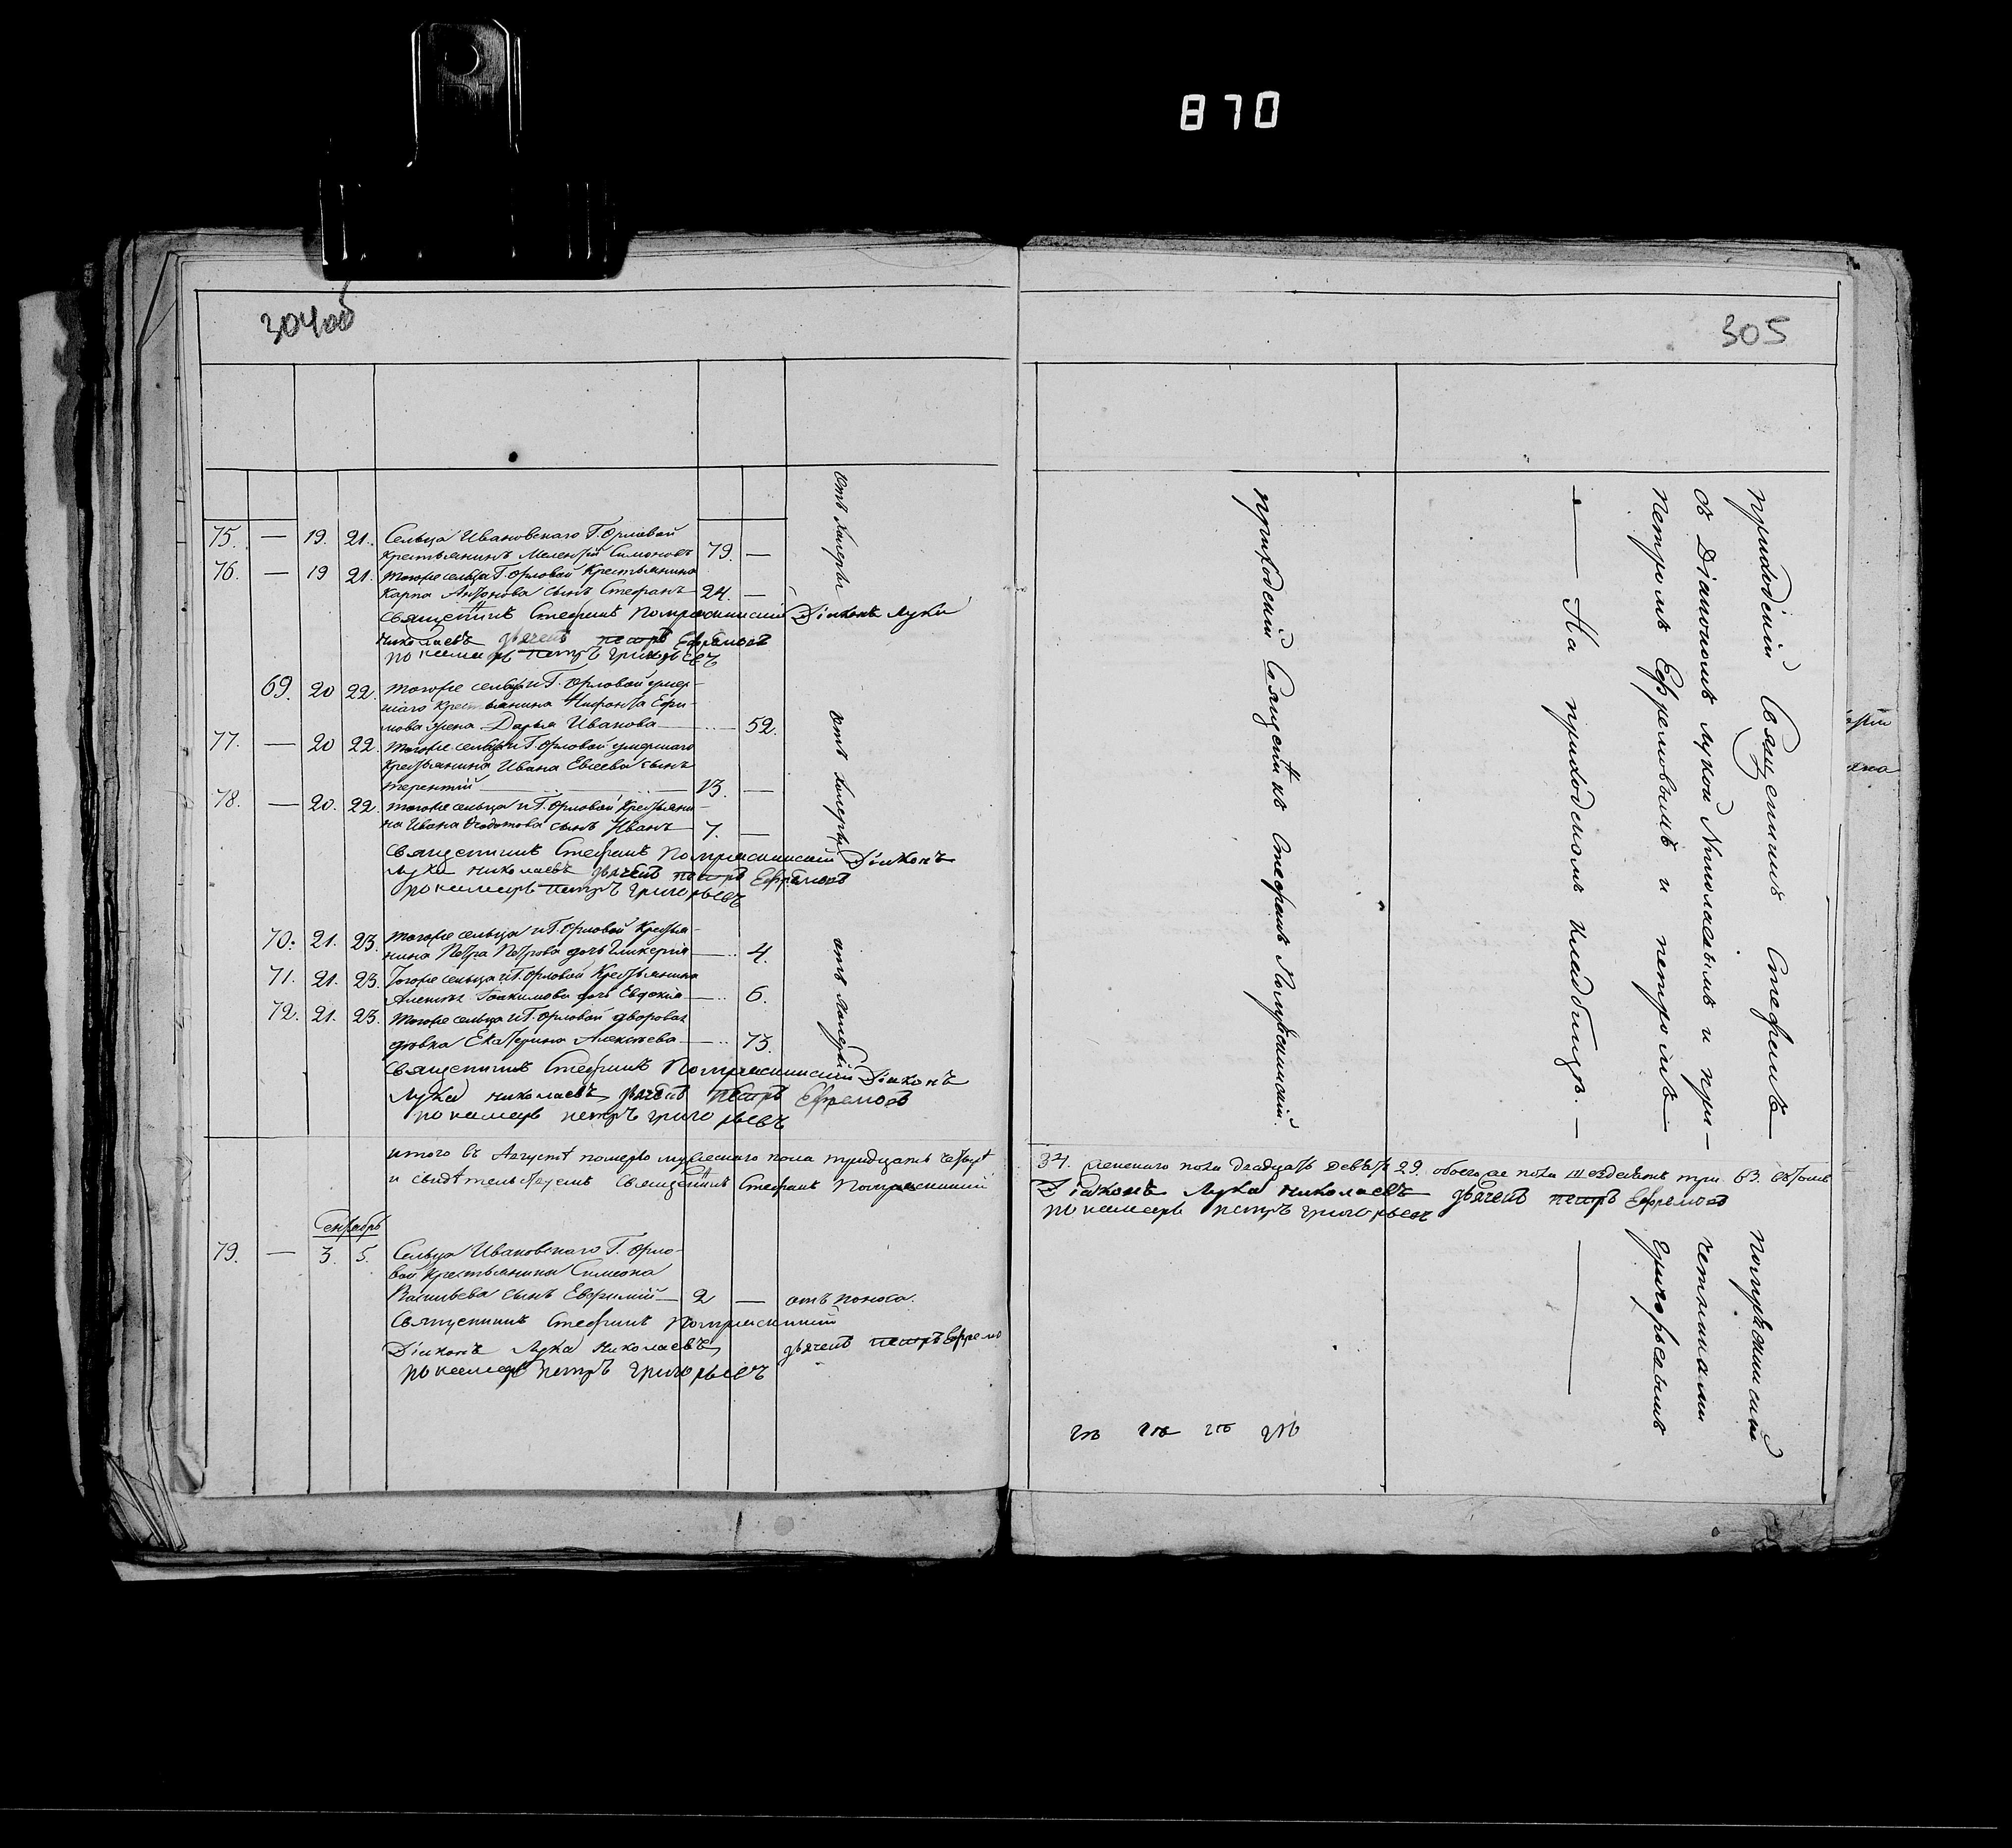 870
304об
305
75. — 19. 21. Сельца Ивановскаго Г. Орловой
Крестьянинъ Мелентій Симоновъ 79. —
76. — 19 21. Тогоже сельца Г. Орловой Крестьянина
Карпа Антонова сынъ Стефанъ 24. —
отъ холеры
Священникъ Стефанъ Діаконъ Лука
Николаевъ дьячекъ петръ Ефремовъ
пономарь петръ григорьевъ
69. 20 22. Тогоже сельца и Г. Орловой умер-
шаго крестьянина Нифонта Ефи-
мова жена Дарья Иванова 52.
77. — 20 22. Тогоже сельца и Г. Орловой умершаго
Крестьянина Ивана Евсеева сынъ
Терентій 13. —
78. — 20. 22. Тогоже сельца и Г. Орловой Крестьяни-
на Ивана Федотова сынъ Иванъ 7. —
отъ холеры
Священникъ Стефанъ Діаконъ
Лука Николаевъ дьячекъ петръ Ефремовъ
пономарь петръ григорьевъ
70. 21. 23. Тогоже сельца и Г. Орловой Крестья-
нина Петра Петрова дочь Гликерія 4.
71. 21. 23. Тогоже сельца и Г. Орловой Крестьянина
дочь Евдокія 6.
72. 21. 23. Тогоже сельца и Г. Орловой дворовая
девка Екатерина Алексеева 73.
отъ холеры
Священникъ Стефанъ Діаконъ
Лука Николаевъ дьячекъ петръ Ефремовъ
пономарь петръ григорьевъ
итого въ Августѣ померло мужескаго пола тридцать четыре
34. женскаго пола двадцать девять 29. обоего же пола шездесятъ три 63. въ томъ
и свидѣтельствуемъ Священникъ Стефанъ
Діаконъ Лука Николаевъ дьячекъ петръ Ефремовъ
пономарь петръ григорьевъ
Сентябрь
79. — 3 5. Сельца Ивановскаго Г. Орло-
вой Крестьянина Симеона
Васильева сынъ Евфимій 2 — отъ поноса.
Священникъ Стефанъ
Діаконъ Лука Николаевъ дьячекъ петръ Ефремо
пономарь петръ григорьевъ
приходскій Священникъ Стефанъ
приходскій Священникъ Стефанъ
съ Діакономъ Лукой Николаевымъ и при-
четниками
петромъ Ефремовымъ и петромъ
Григорьевымъ
— На приходскомъ кладбищѣ. —